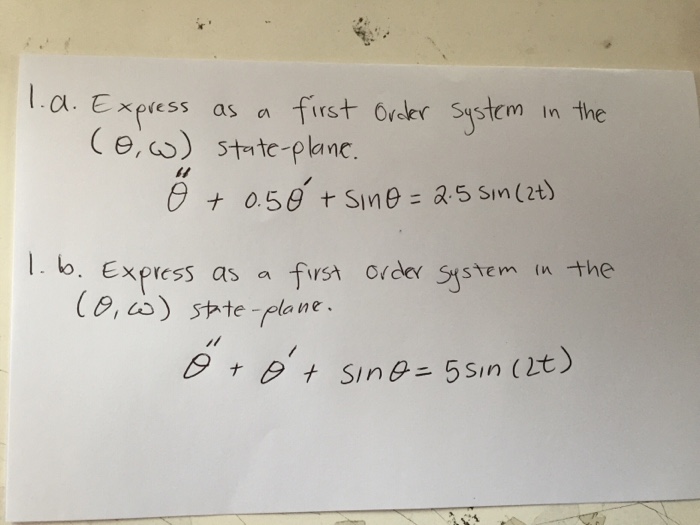 1.a. Express as a first order system in the
(θ, ω) state-plane.
θ'' + 0.5θ' + sinθ = 2.5 sin(2t)
1. b. Express as a first order system in the
(θ, ω) state-plane.
θ'' + θ' + sinθ = 5 sin(2t)